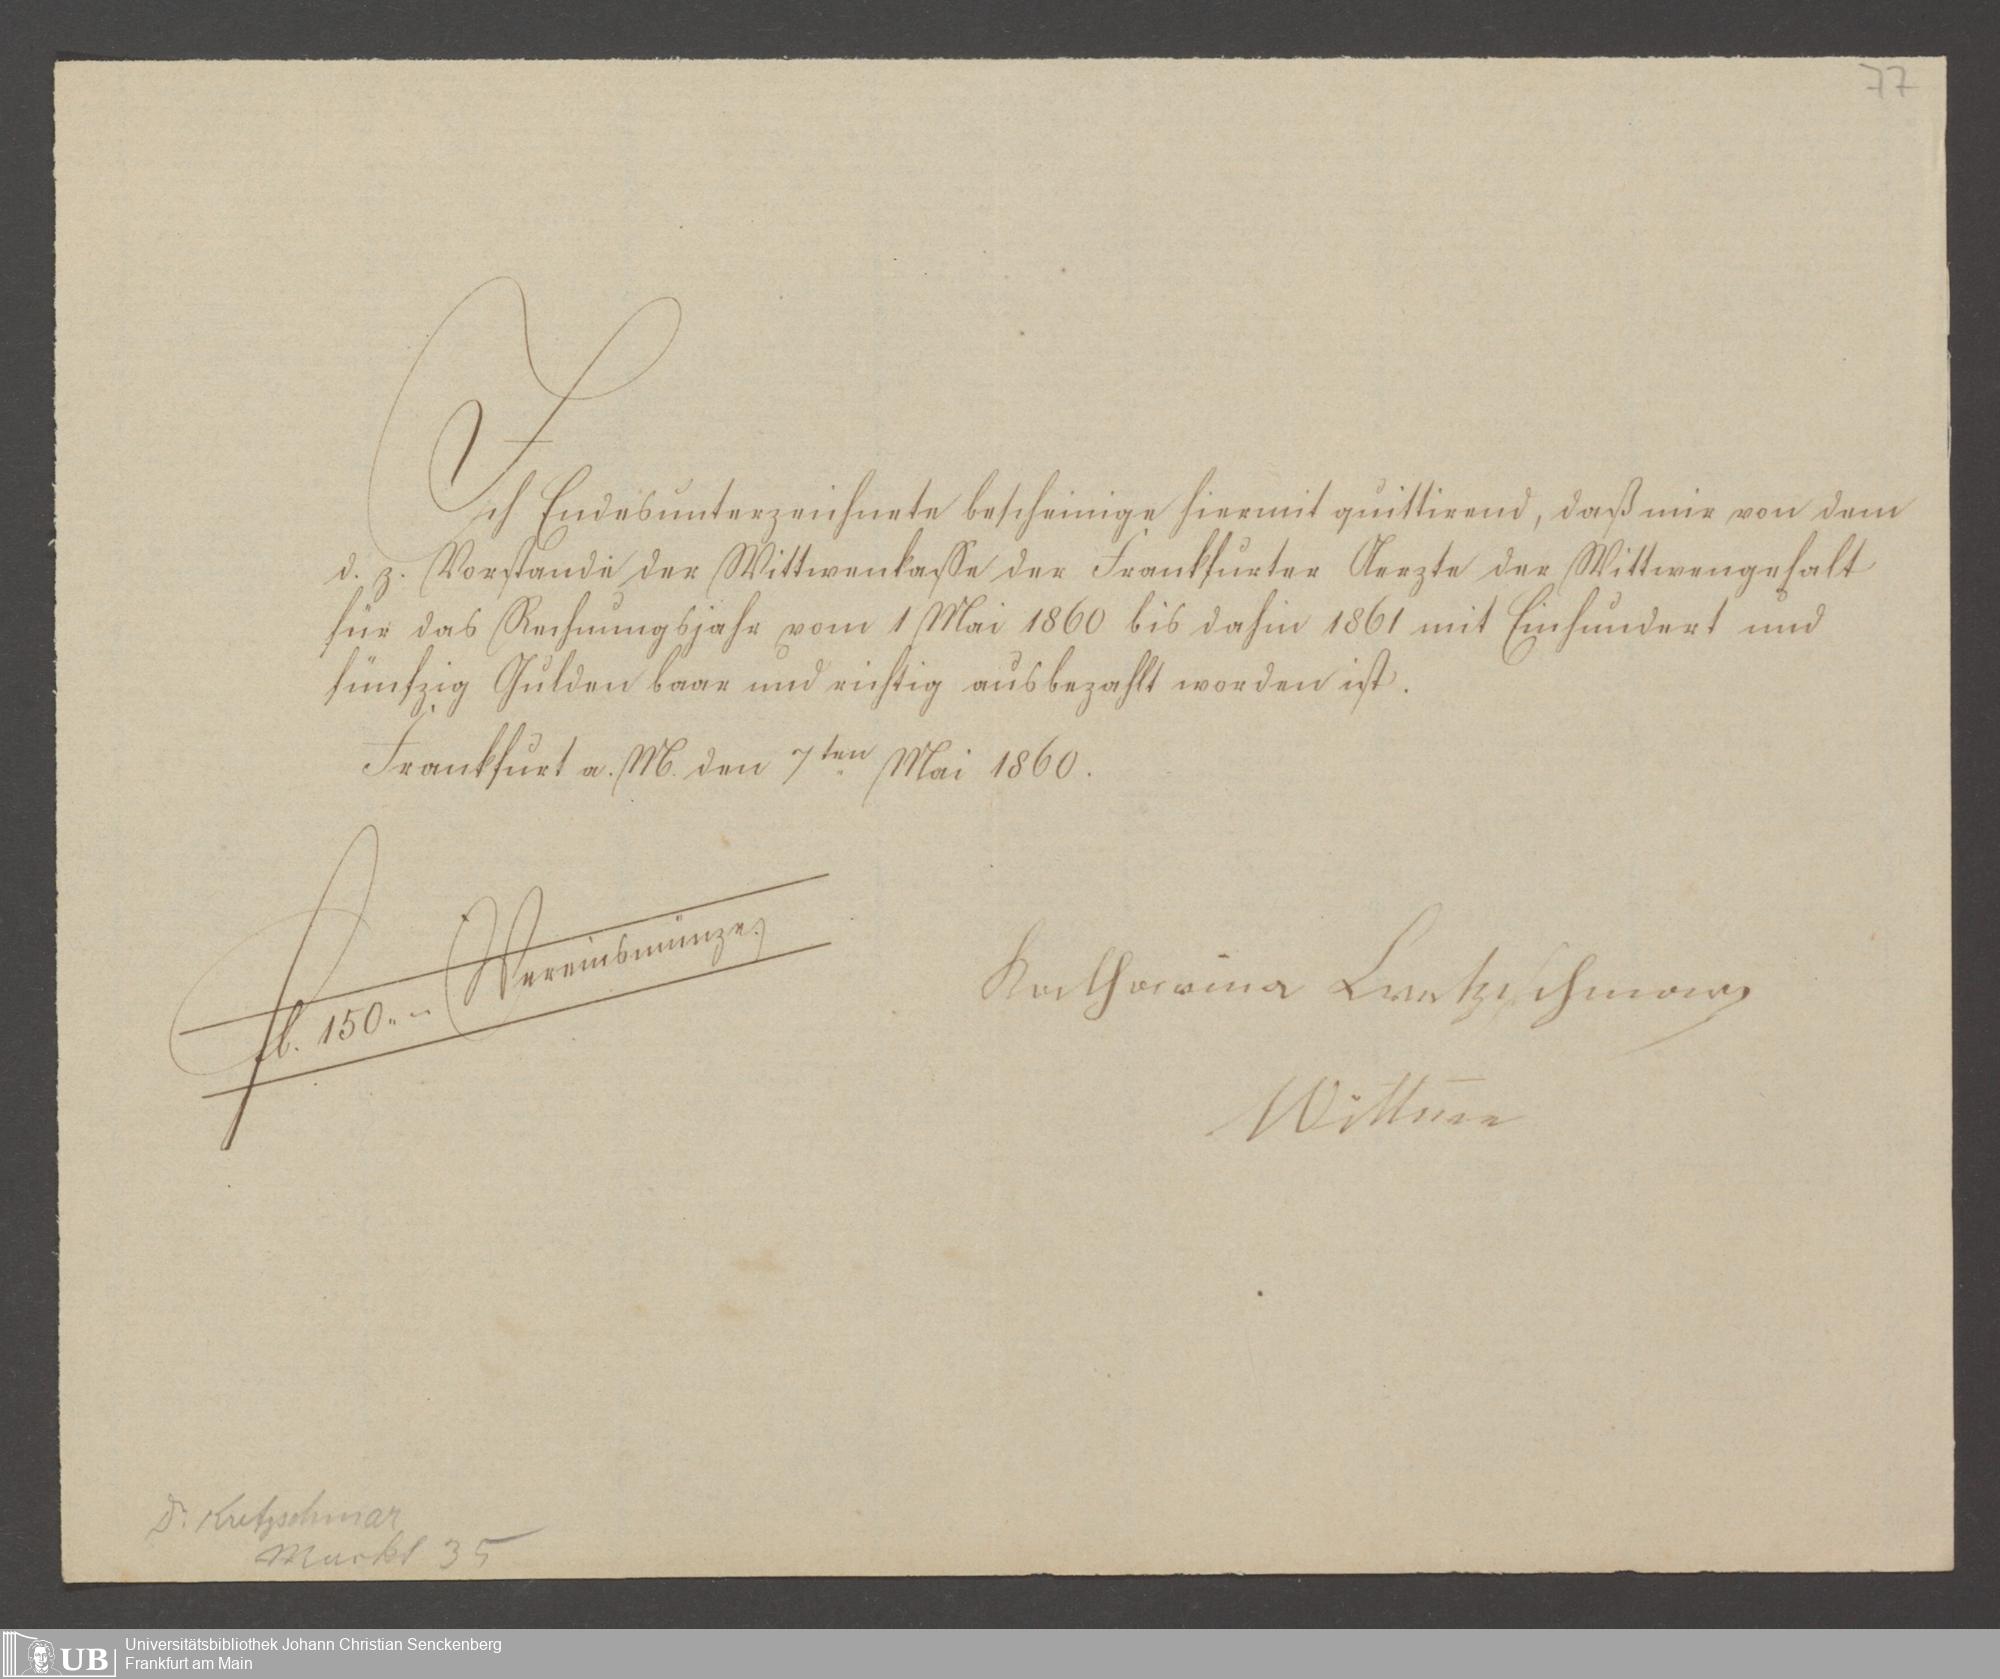 77
Ich Endesunterzeichnete bescheinige hiermit quittirend, daß mir von dem
d. z. Vorstande der Wittwenkasse der Frankfurter Aerzte der Wittwengehalt
für das Rechnungsjahr vom 1 Mai 1860 bis dahin 1861 mit Einhundert und
fünfzig Gulden baar und richtig ausbezahlt worden ist.
Frankfurt a. M. den 7ten Mai 1860.
fl. 150.„ – Vereinsmünze.
Katharina Kretzschmar
Wittwe
Dr. Kretzschmar
Markt 35
UB Universitätsbibliothek Johann Christian Senckenberg
Frankfurt am Main